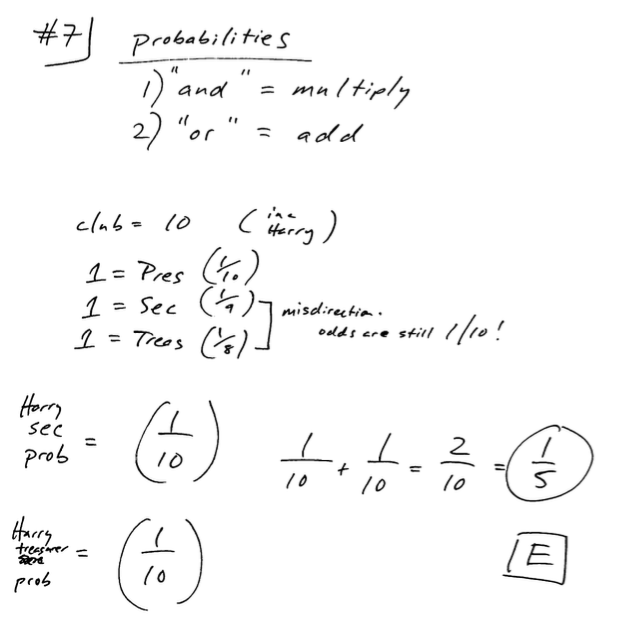 #7
probabilities
1) "and" = multiply
2) "or" = add
club = 10 (inc Harry)
1 = Pres (1/10)
1 = Sec (1/9)
1 = Treas (1/8)
misdirection.
odds are still 1/10!
Harry
sec
prob = (1/10)
1/10 + 1/10 = 2/10 = 1/5
Harry
treasurer
prob = (1/10)
E